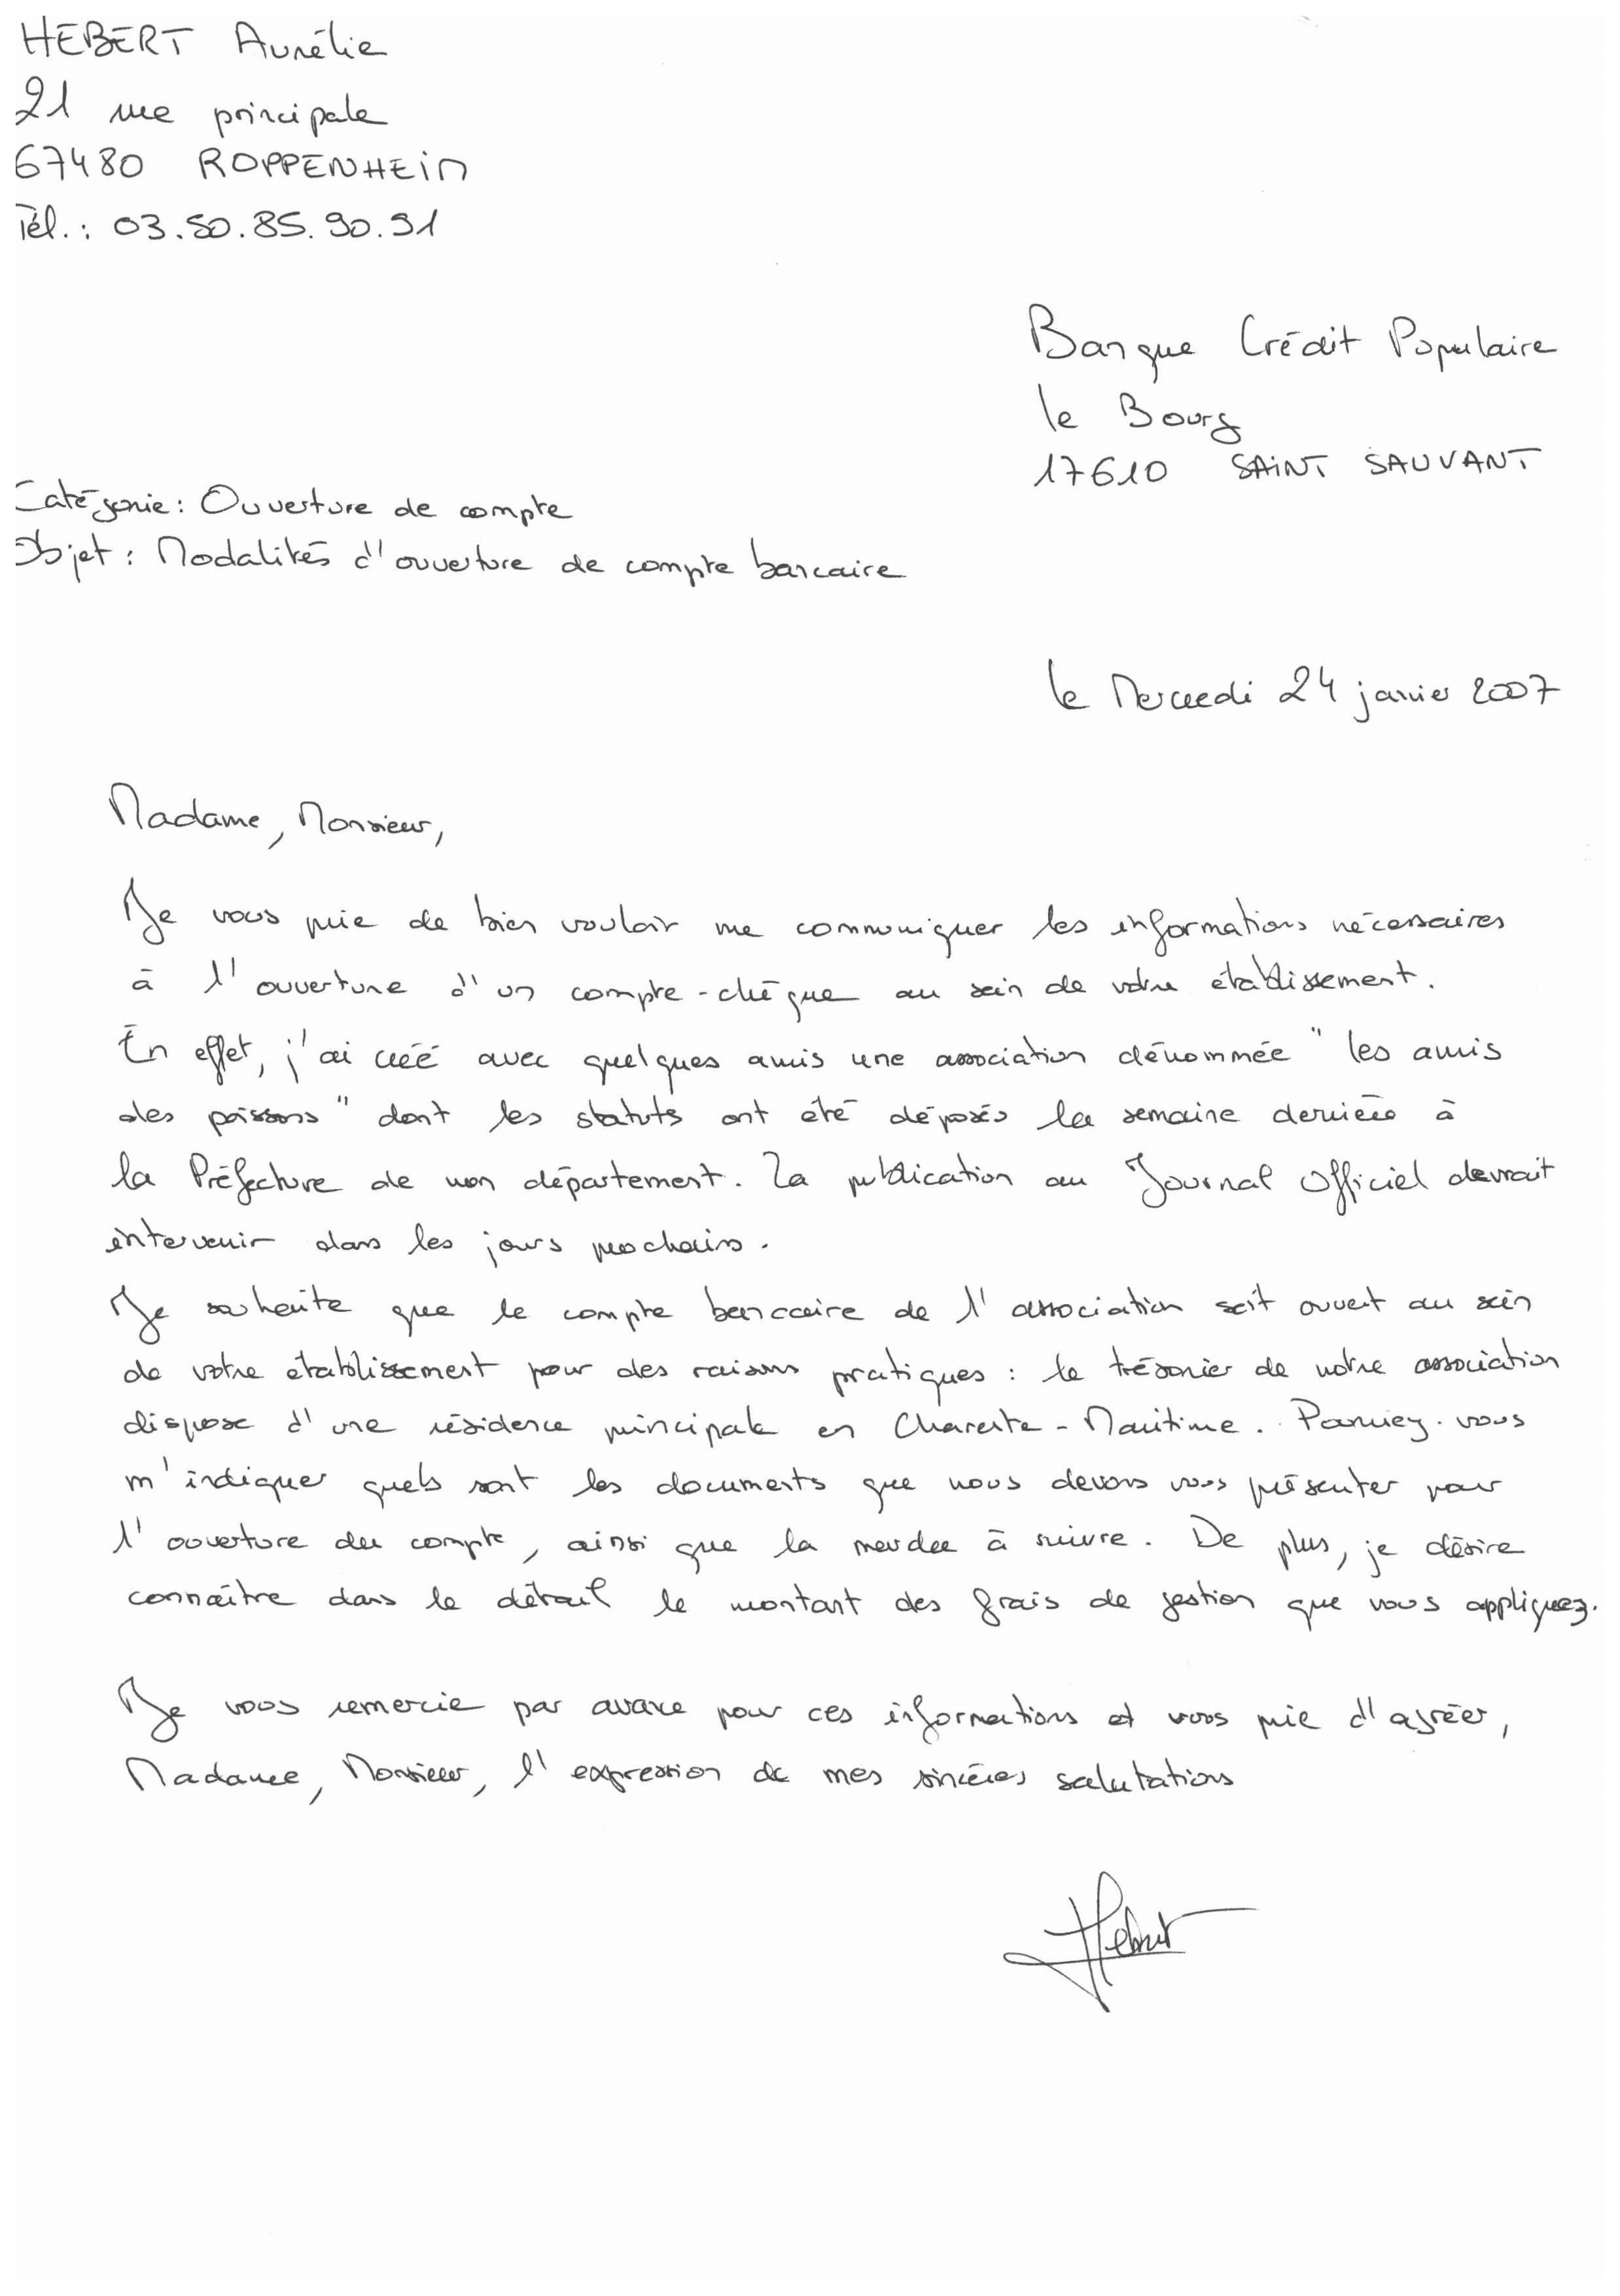 HEBERT Aurélie
21 rue principale
67480 ROPPENHEIM
Tél. : 03.90.85.90.91
Banque Crédit Populaire
le Bourg
17610 SAINT SAUVANT
Catégorie : Ouverture de compte
Objet : Modalités d'ouverture de compte bancaire
le Mercredi 24 janvier 2007
Madame, Monsieur,
Je vous prie de bien vouloir me communiquer les informations nécessaires
à l'ouverture d'un compte-chèque au sein de votre établissement.
En effet, j'ai créé avec quelques amis une association dénommée "les amis
des poissons" dont les statuts ont été déposés la semaine dernière à
la Préfecture de mon département. La publication au Journal Officiel devrait
intervenir dans les jours prochains.
Je souhaite que le compte bancaire de l'association soit ouvert au sein
de votre établissement pour des raisons pratiques : le trésorier de notre association
dispose d'une résidence principale en Charente-Maritime. Pourriez-vous
m'indiquer quels sont les documents que nous devons vous présenter pour
l'ouverture du compte, ainsi que la marche à suivre. De plus, je désire
connaître dans le détail le montant des frais de gestion que vous appliquez.
Je vous remercie par avance pour ces informations et vous prie d'agréer,
Madame, Monsieur, l'expression de mes sincères salutations
Hebert